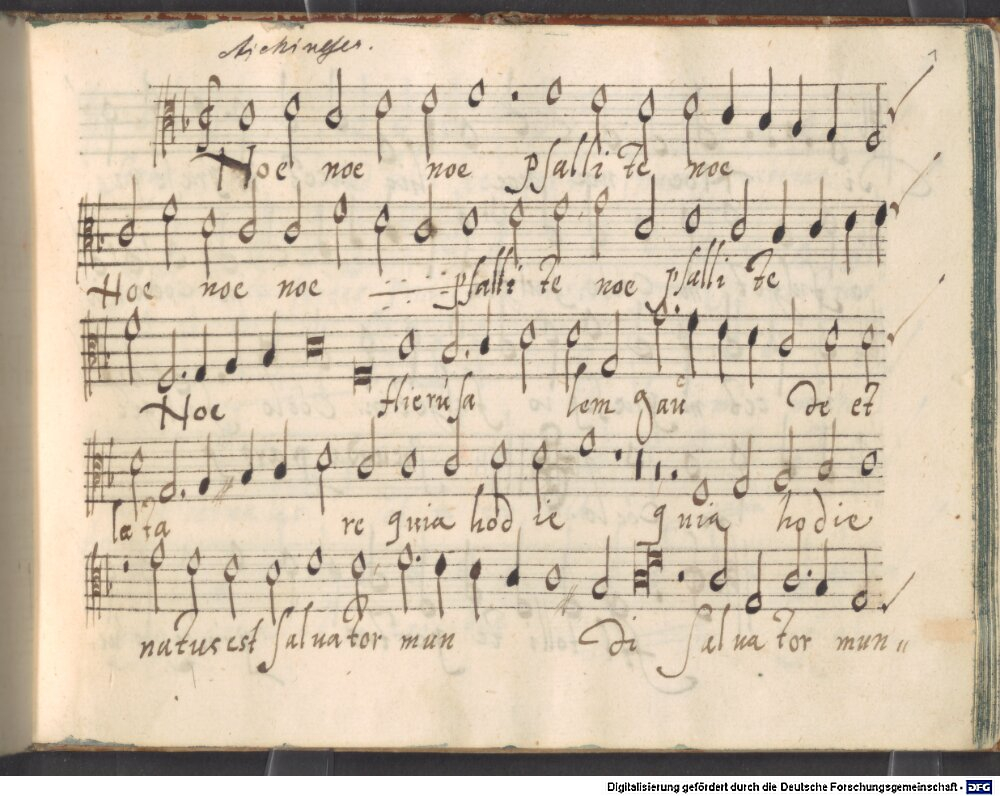 Aichinger.
Noe noe noe psallite noe
Noe noe noe psallite noe psallite
Noe Hierusalem gaude et
læta re quia hodie quia hodie
natus est saluator mun di saluator mun
Digitalisierung gefördert durch die Deutsche Forschungsgemeinschaft - DFG